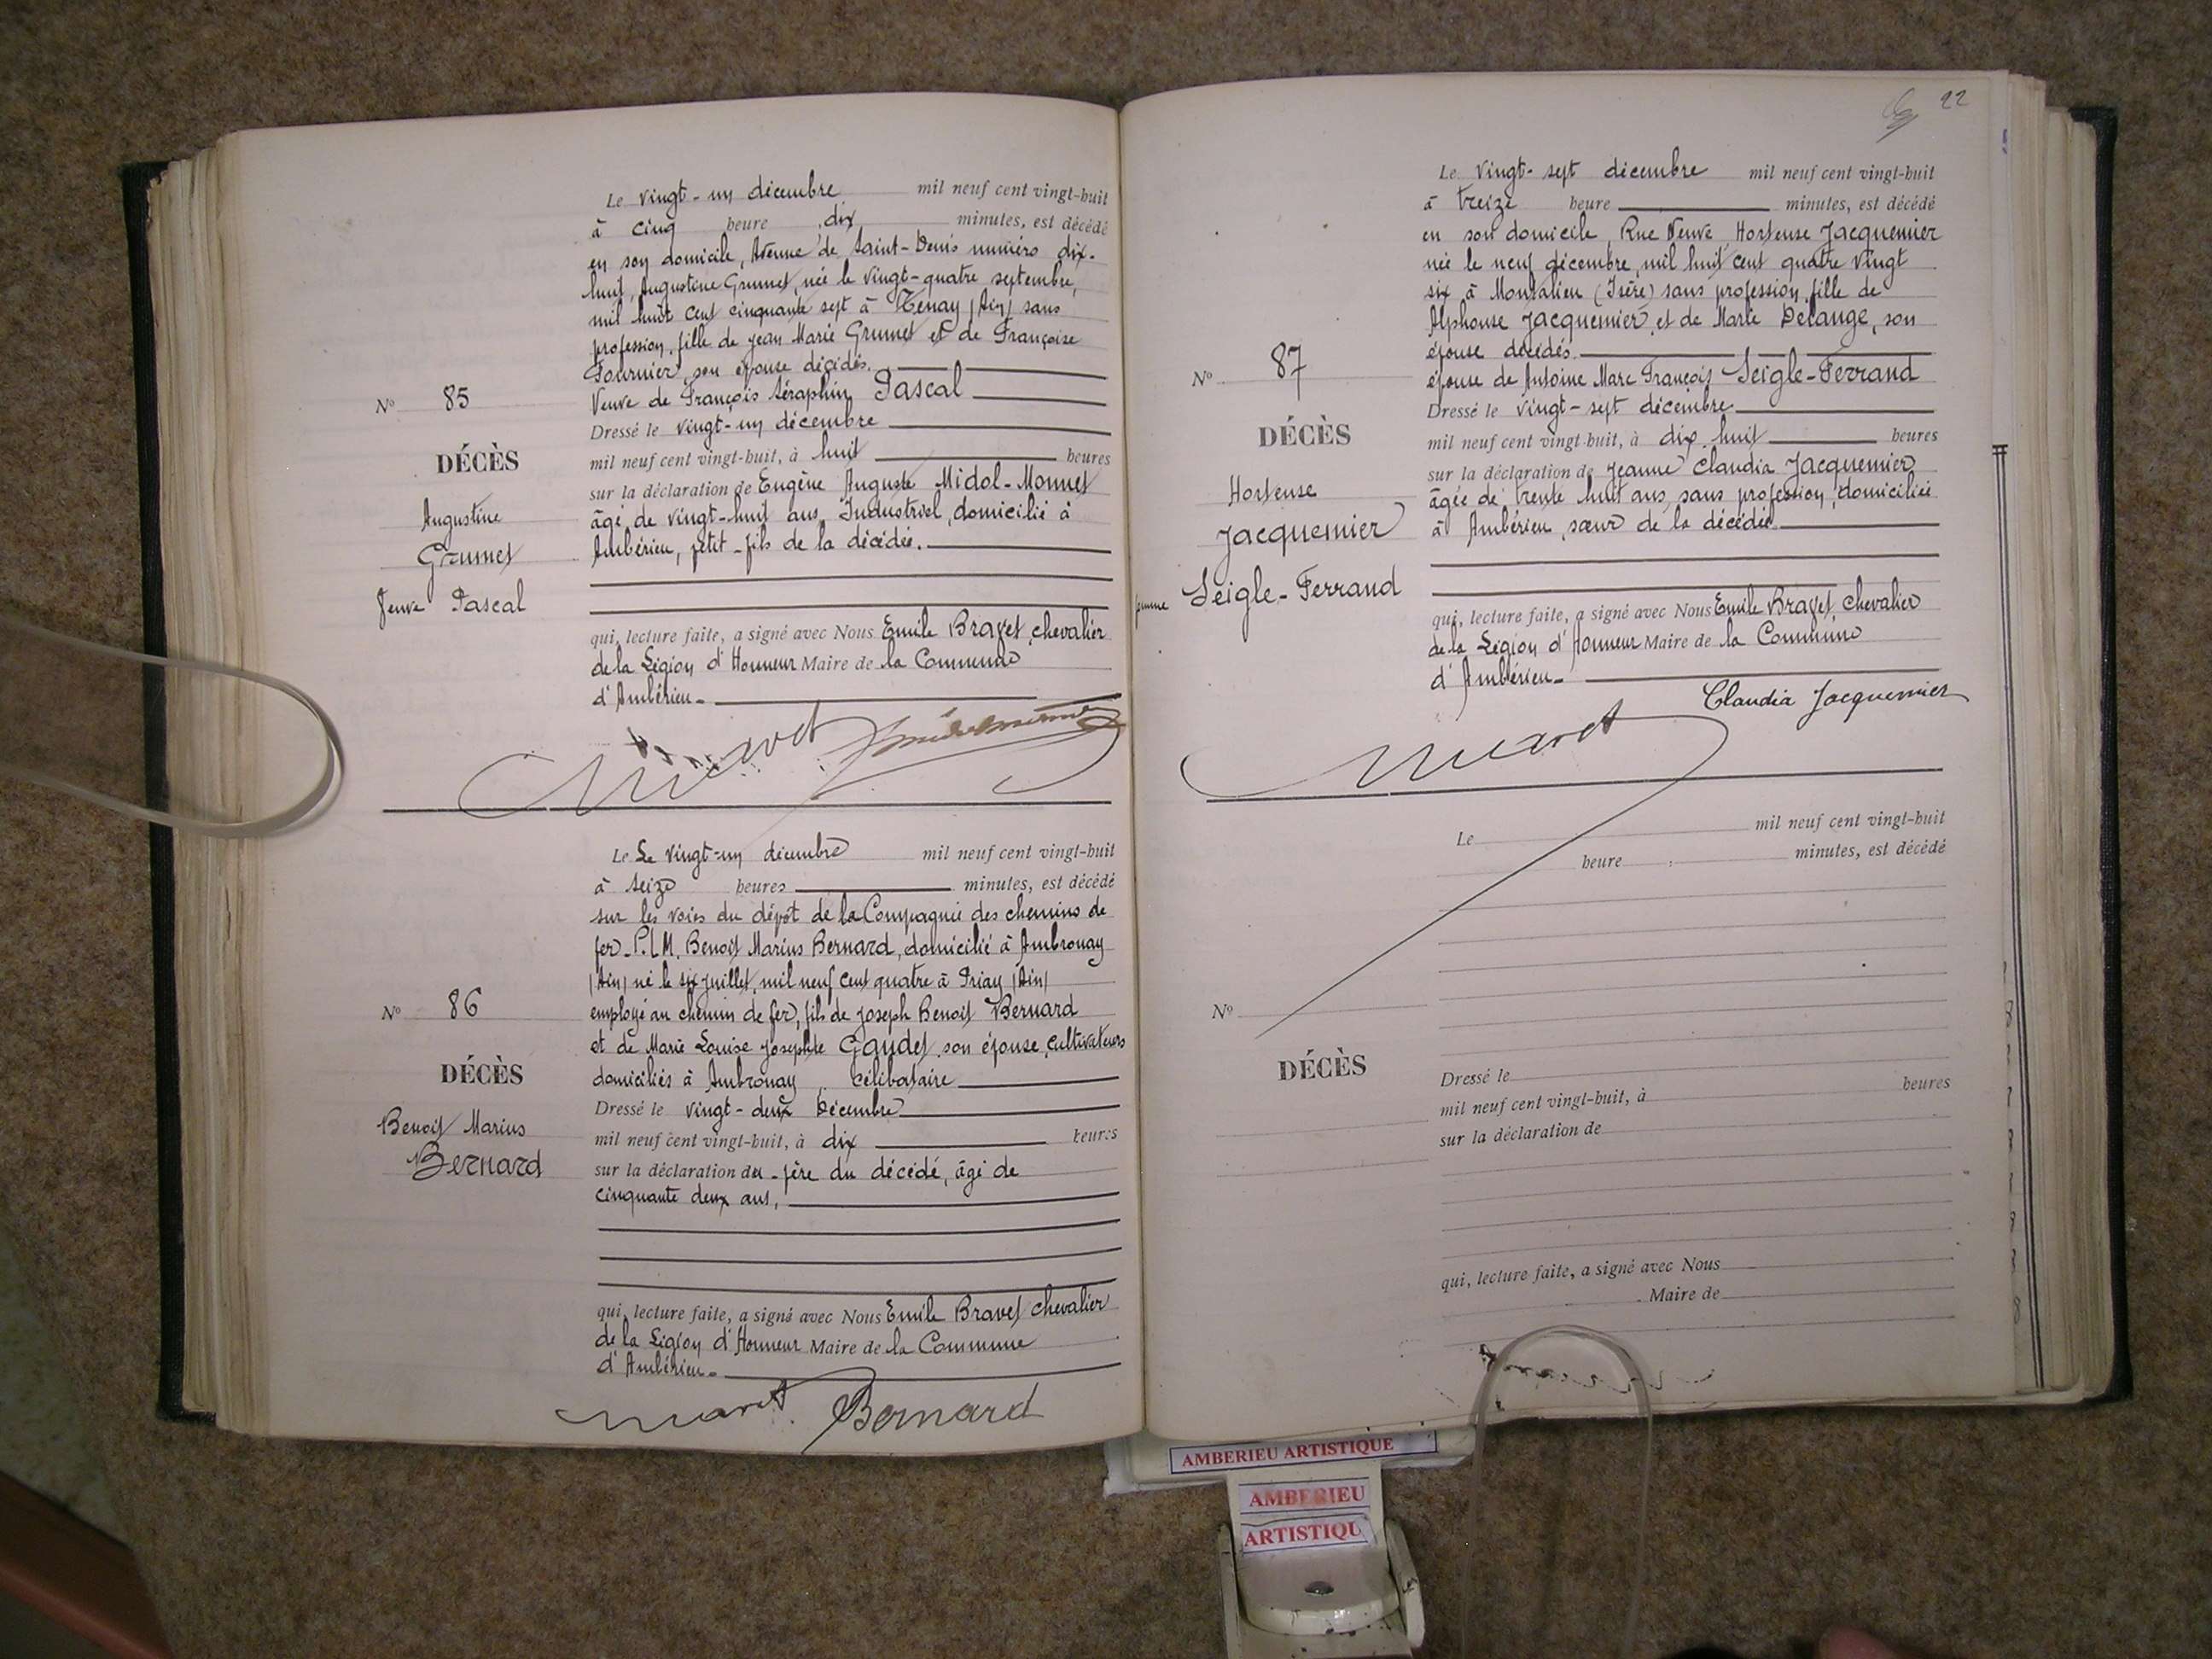 Le vingt-un décembre mil neuf cent vingt-huit
à cinq heure dix minutes, est décédé
en son domicile, Avenue de Saint-Denis numéro dix-
huit, Augustine Grumet, née le vingt-quatre septembre,
mil huit cent cinquante sept à Tenay (Ain) sans
profession, fille de Jean Marie Grumet et de Françoise
Fournier, son épouse décédés.
Veuve de François Séraphin Pascal
Dressé le vingt-un décembre
mil neuf cent vingt-huit, à huit heures
sur la déclaration de Eugène Auguste Midol-Monnet
âgé de vingt-huit ans, Industriel, domicilié à
Ambérieu, petit-fils de la décédée.
qui, lecture faite, a signé avec Nous Emile Bravet, chevalier
de la Légion d'Honneur Maire de la Commune
d'Ambérieu.
No 85
DÉCÈS
Augustine
Grumet
Veuve Pascal
Le Le vingt-un décembre mil neuf cent vingt-huit
à seize heures minutes, est décédé
sur les voies du dépôt de la Compagnie des chemins de
fer P.L.M. Benoit Marius Bernard, domicilié à Ambronay
(Ain) né le six juillet, mil neuf cent quatre à Priay (Ain)
employé au chemin de fer, fils de Joseph Benoit Bernard
et de Marie Louise Josephte Gaudet, son épouse, cultivateurs
domiciliés à Ambronay. Célibataire
Dressé le vingt-deux Décembre
mil neuf cent vingt-huit, à dix heures
sur la déclaration du père du décédé, âgé de
cinquante deux ans,
qui, lecture faite, a signé avec Nous Emile Bravet chevalier
de la Légion d'Honneur Maire de la Commune
d'Ambérieu.
Bernard
No 86
DÉCÈS
Benoit Marius
Bernard
22
Le vingt-sept décembre mil neuf cent vingt-huit
à treize heure minutes, est décédé
en son domicile, Rue Neuve, Hortense Jacquemier
née le neuf décembre, mil huit cent quatre vingt
six à Montalieu (Isère) sans profession, fille de
Alphonse Jacquemier, et de Marie Delange, son
épouse décédés.
épouse de Antoine Marc François Seigle-Ferrand
Dressé le vingt-sept décembre
mil neuf cent vingt-huit, à dix huit heures
sur la déclaration de Jeanne Claudia Jacquemier
âgée de trente huit ans, sans profession, domiciliée
à Ambérieu, sœur de la décédée
qui, lecture faite, a signé avec Nous Emile Bravet chevalier
de la Légion d'Honneur Maire de la Commune
d'Ambérieu.
Claudia Jacquemier
No 87
DÉCÈS
Hortense
Jacquemier
femme Seigle-Ferrand
Le mil neuf cent vingt-huit
heure minutes, est décédé
No
DÉCÈS
Dressé le
mil neuf cent vingt-huit, à heures
sur la déclaration de
qui, lecture faite, a signé avec Nous
Maire de
AMBERIEU ARTISTIQUE
AMBERIEU
ARTISTIQU